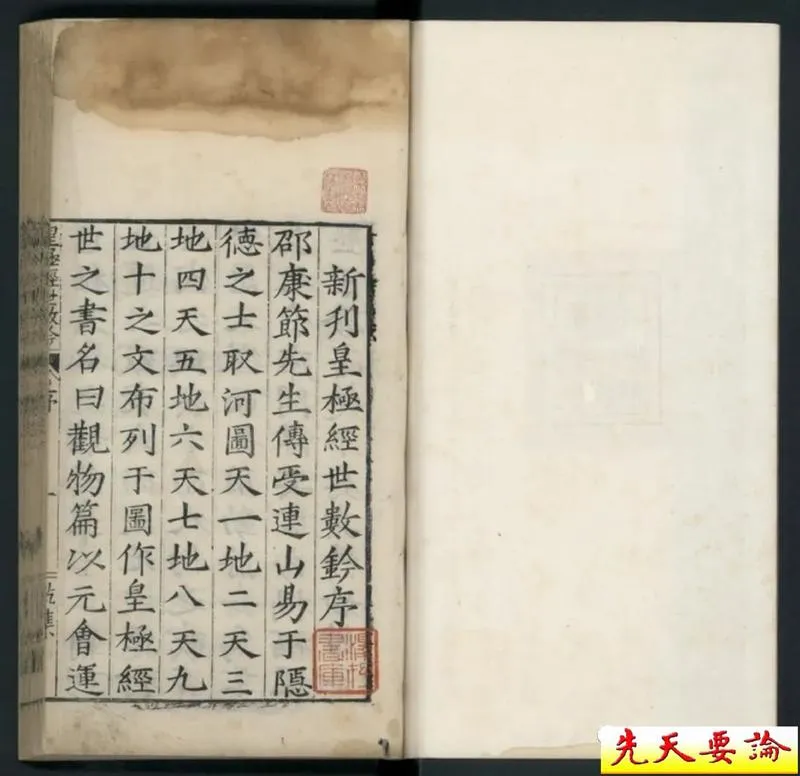 新刋皇極經世數鈐序
邵康節先生傳受連山易于隱
德之士取河圖天一地二天三
地四天五地六天七地八天九
地十之文布列于圖作皇極經
世之書名曰觀物篇以元會運
皇極經世數鈐
序
一
乾集
書庫
先天要論